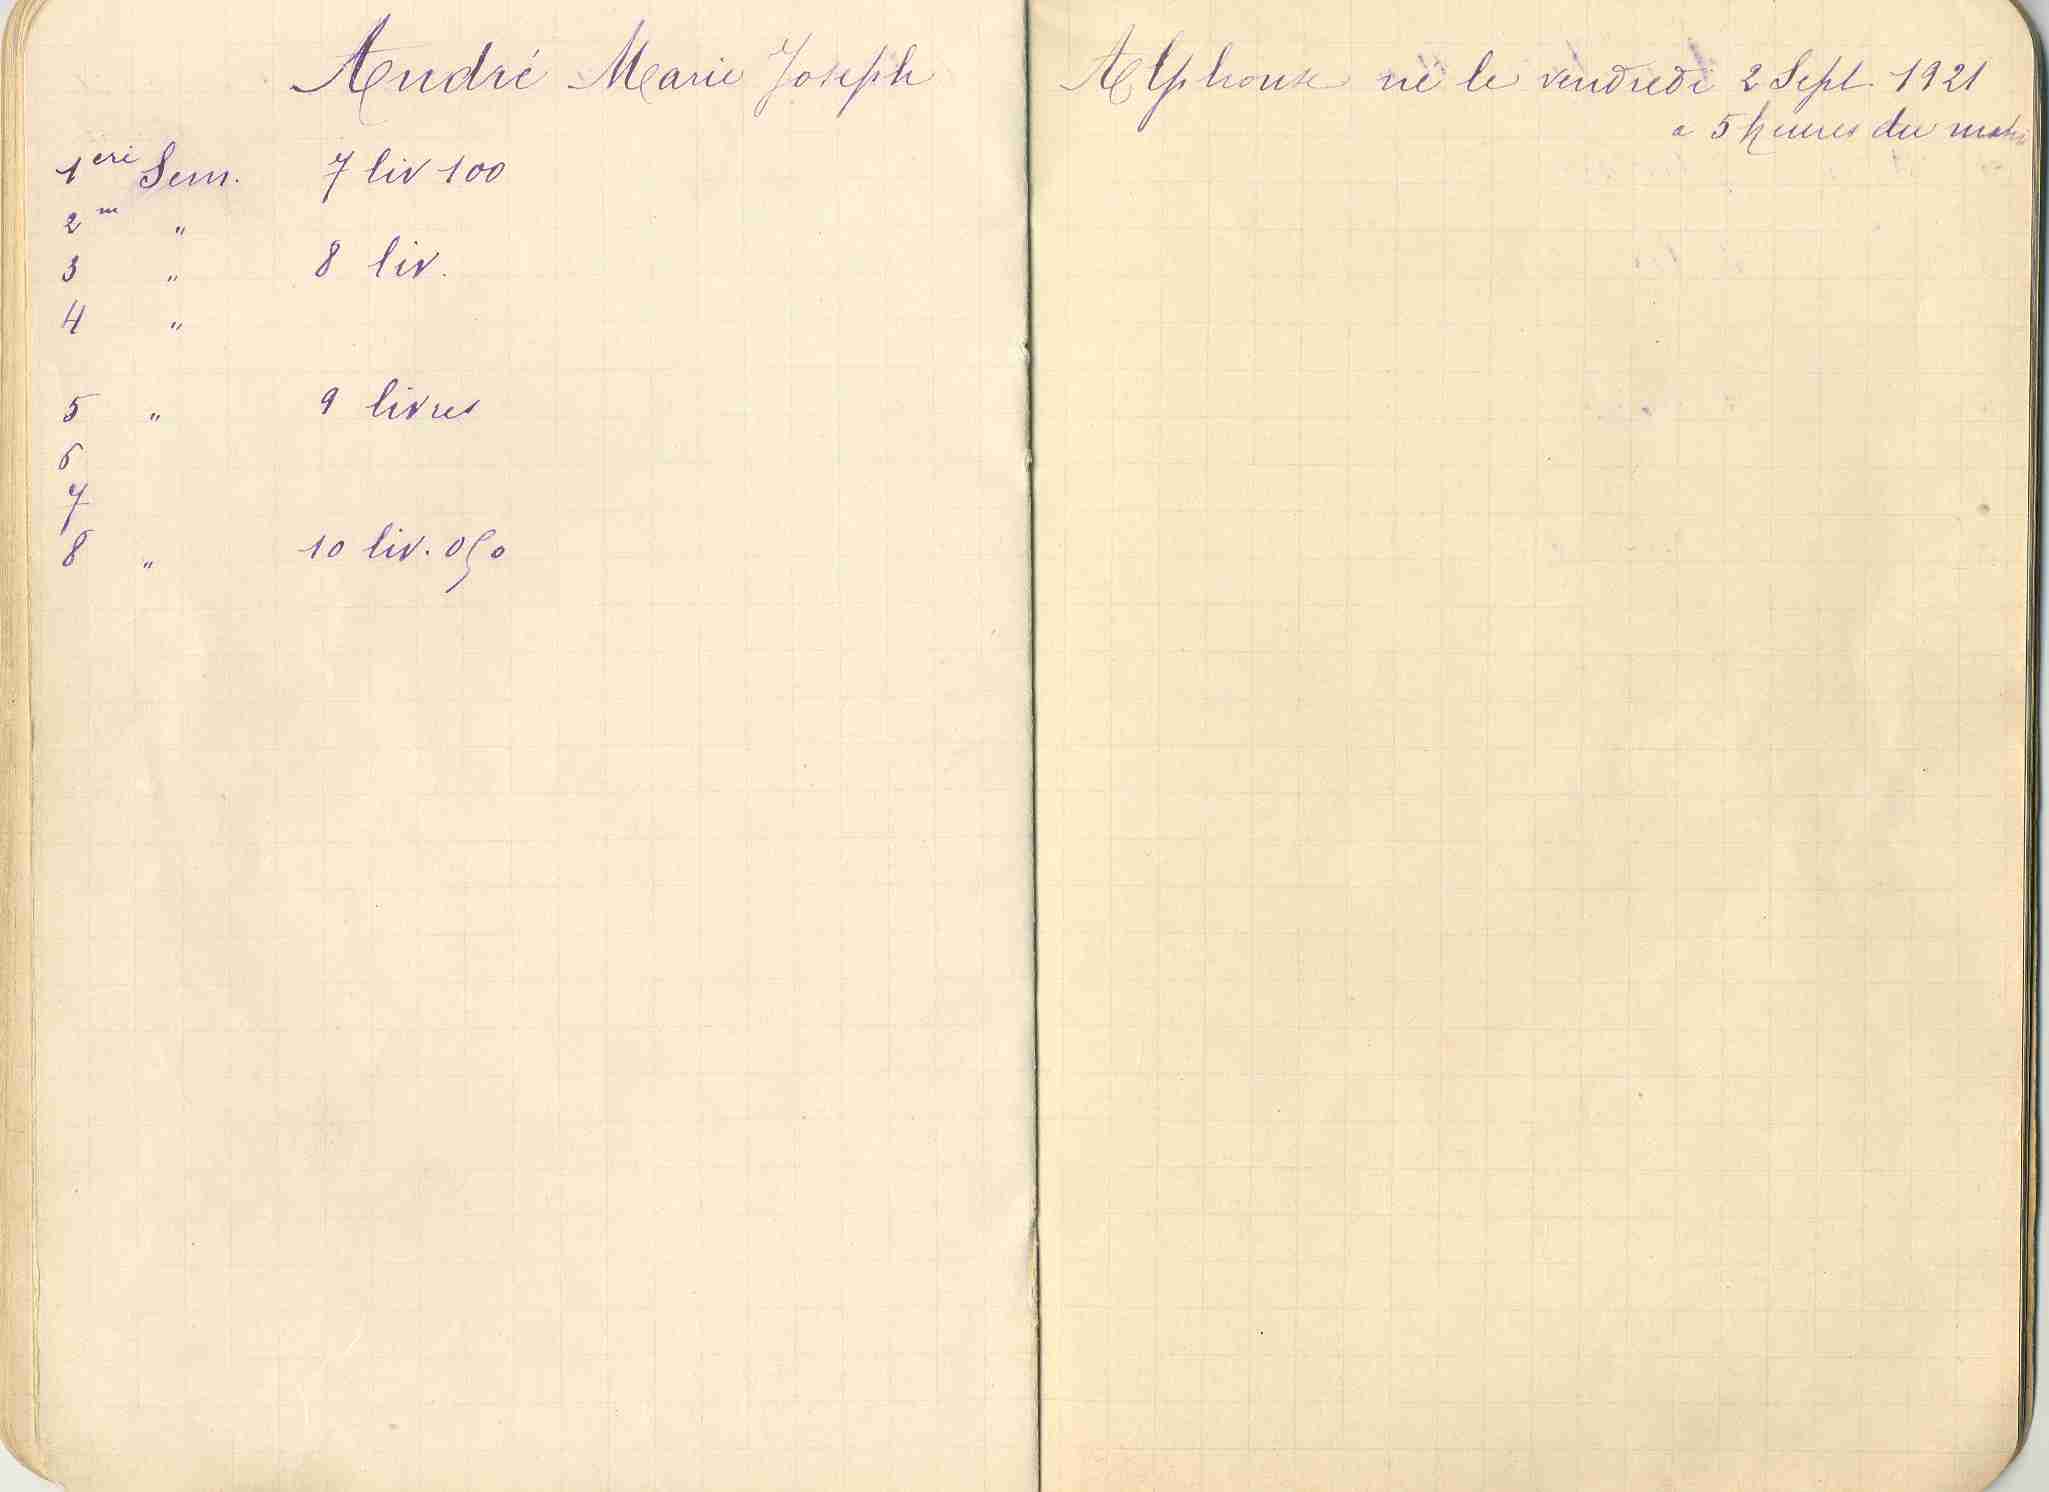 André Marie Joseph Alphonse né le vendredi 2 Sept. 1921
a 5 heures du matin
1ere Sem. 7 liv 100
2m "
3 " 8 liv.
4 "
5 " 9 livres
6
7
8 " 10 liv. 050